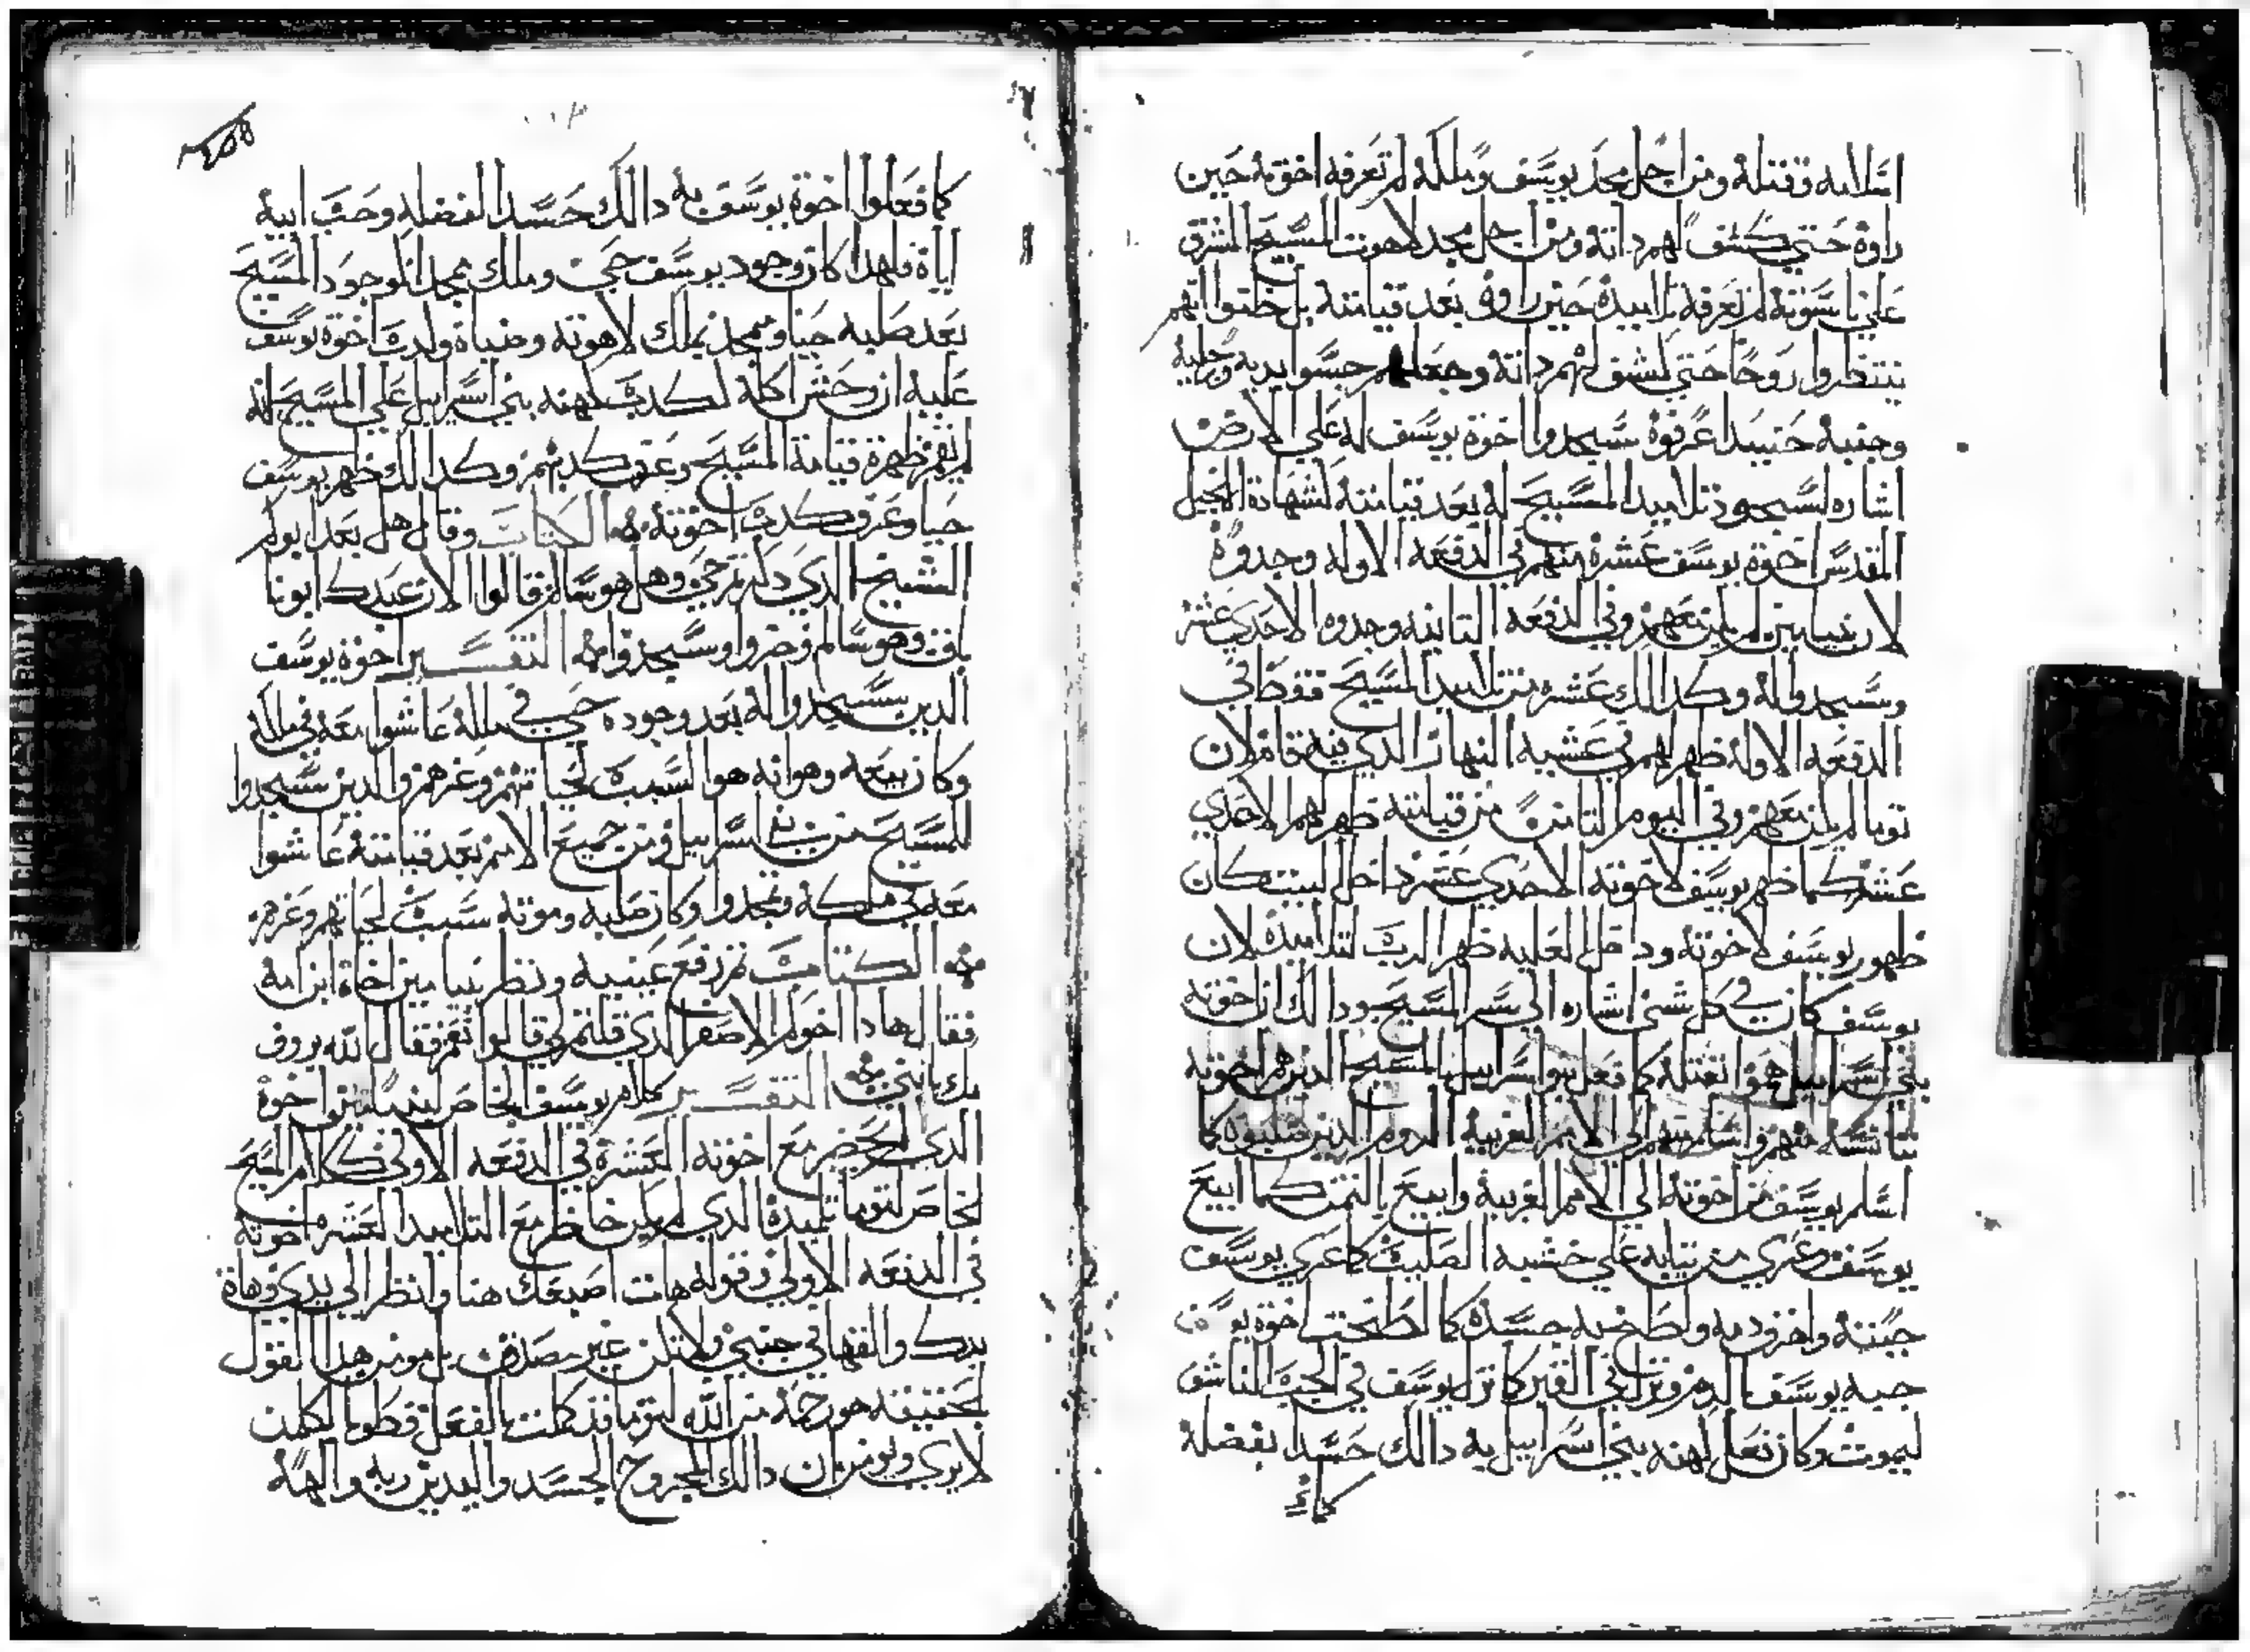 اسلامه وقتله ومن اجل مجد يوسف وملكه لم تعرفه اخوته حين
راوه حتي كشف لهم داته ومن اجل مجد لاهوت المسيح المشرق
علي ناسوته لم تعرفه تلاميده حين راوه بعد قيامته بل ظنوا انهم
ينتظروا روحا حتي كشف لهم داته وجعلهم جسوا يديه ورجليه
وجنبه حنييدا عرفوه سجدوا اخوة يوسف له علي الارض
اشاره لسجود تلاميد المسيح له بعد قيامته لشهادة الانجيل
المقدس اخوة يوسف عشره منهم في الدفعه الاوله وجدوة
لان بنيامين لم يكن معهم وفي الدفعه التانيه وجدوه الاحدي عشر
وسجدوا له وكدالك عشره من تلاميد المسيح فقط في
الدفعه الاوله ظهر لهم في عشية النهار الدي فيه قام لان
توما لم يكن معهم وفي اليوم التامن من قيامته ظهر لهم الاحدي
عشر كما ظهر يوسف لاخوته الاحدي عشر داخل البيت كان
ظهور يوسف لاخوته وداخل العليه ظهر الرب لتلاميده لان
يوسف كان في كل شي اشاره الي سر المسيح ودالك ان اخوته
بني اسراييل هموا بقتله كما فعل بنوا اسراييل بالمسيح الدين هم اخوته
منهم واسلم منهم الي الامم الغريبه الروم الدين صلبوه كما
اسلم يوسف من اخوته الي الامم الغريبة وابيع بالتمن كما ابيع
يوسف وعري من تيابه علي خشبه الصليب كما عري يوسف
جبته واهرق دمه ولطخ به جسده كما لطخت اخوة يوسف
جبه يوسف بالدم ونزل في القبر كما نزل يوسف في الجب الناشف
ليموت وكان فعل كهنه بني اسراييل به دالك حسدا بفضله
كما
كما فعلوا اخوة يوسف به دالك حسدا لفضله وحب ابيه
اياه فلهدا كان وجود يوسف حي وملك بمجد لوجود المسيح
بعد صلبه حيا ومجد بملك لاهوته وضياه ولدب اخوة يوسف
عليه ان وحش اكله لكدب كهنه بني اسراييل علي المسيح انه
لم يقم ظهرة قيامة المسيح وعرف كدبهم وكدالك ظهر يوسف
حيا وعرف كدب اخوته الكتاب وقال هل بعد ابوكم
الشيخ الدي دكرتم حي وهل هو سالم قالوا الان عبدك ابونا
باق وهو سالم وخروا وسجدوا التفسير اخوة يوسف
الدين سجدوا له بعد وجوده حي في ملكه عاشوا معه في ملكه
وكان بيعه وهوانه هوا السبب لحياتهم وعزهم والدين سجدوا
للمسيح من بني اسراييل ومن جميع الامم بعد قيامته عاشوا
معه في ملكه ومجدوا وكان صلبه وموته سبب لحياتهم وعزهم
الكتاب تم رفع عينيه ونظر بنيامين اخاه ابن امه
فقال هادا اخوكم الاصغر الدي قلتم لي قالوا نعم فقال الله يروف
بك يا بني التفسير كلام يوسف الخاص لبنيامين اخوة
الدي لم يحضر مع اخوته العشرة في الدفعه الاولي كلام المسيح
الخاص لتوما تلميدة الدي لم يكن حاظر مع التلاميد العشره اخوته
في الدفعه الاولي بقوله هات اصبعك هنا وانظر الي يدي وهاة
يدك والقها في جنبي ولا تكن غير مصدق بل مومن هدا القول
بالحقيقه هو رحمة من الله لتوما قد كملت بالفعل فطوبا لكلمن
لا يري ويومن ان دالك المجروح الجسد واليدين ربه والهه